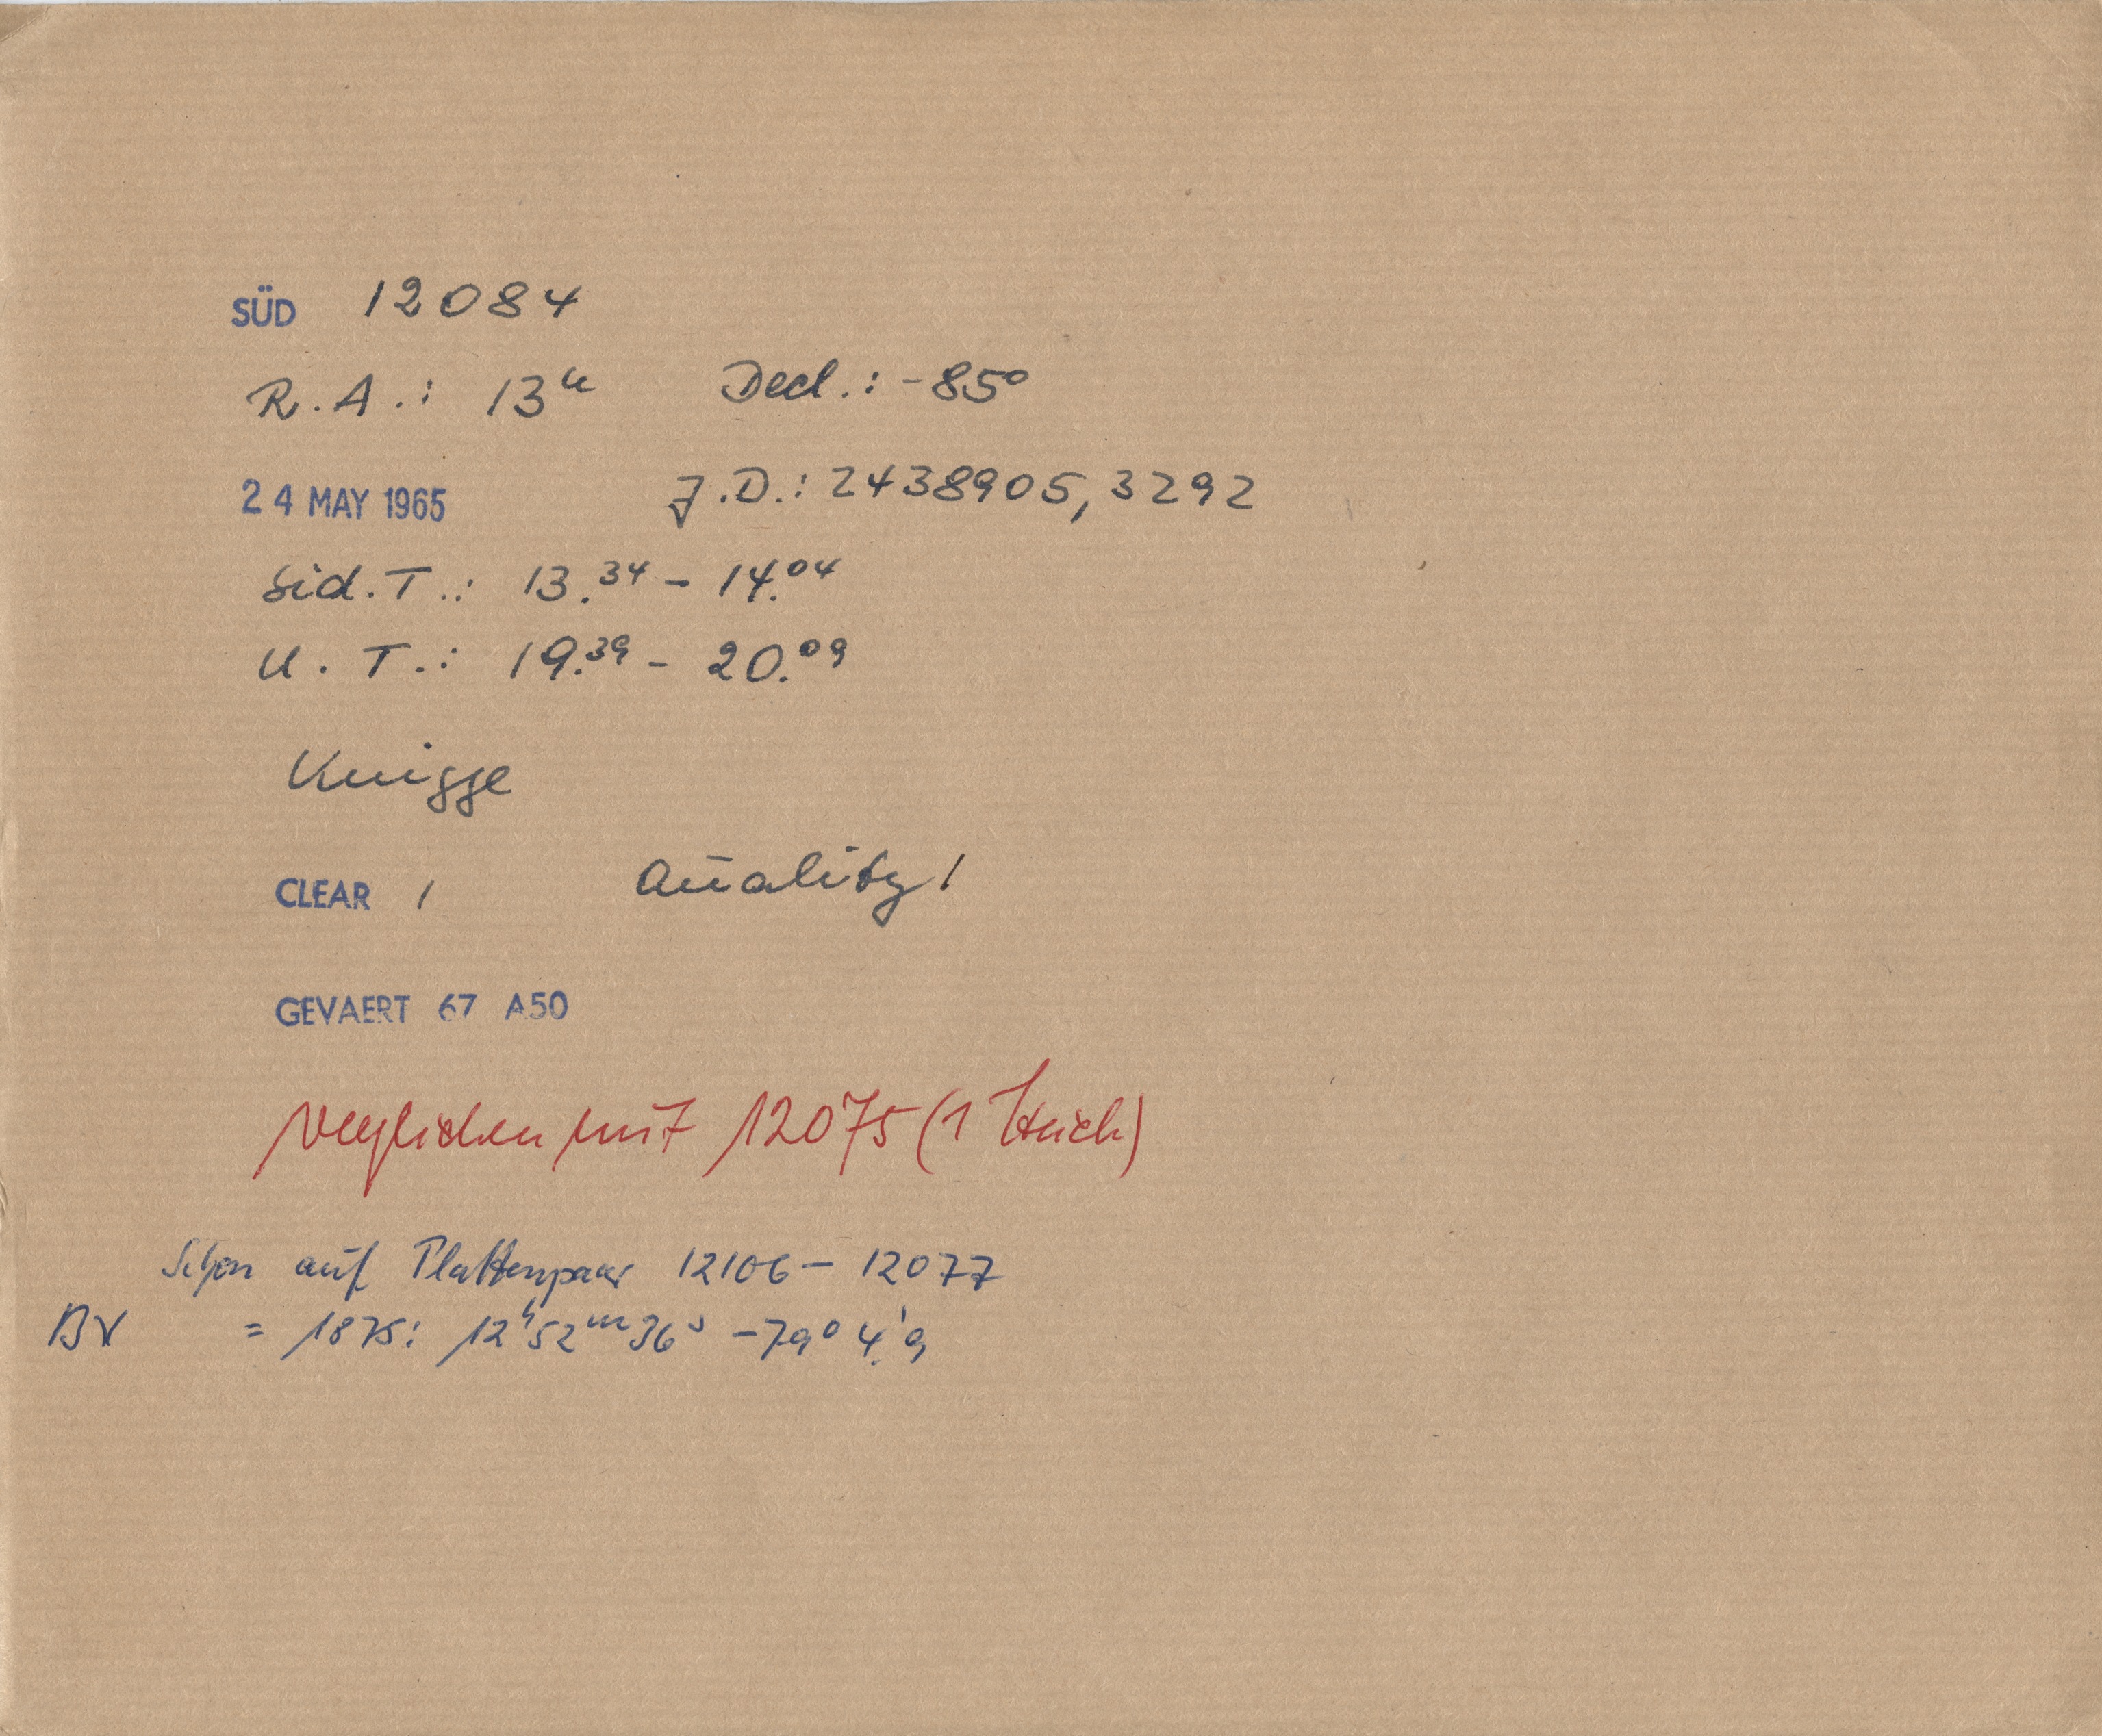 SÜD 12084
R.A.: 13ʰ Decl.: -85°
24 MAY 1965 J.D.: 2438905,3292
Sid.T.: 13.³⁴ - 14.⁰⁴
U.T.: 19.³⁹ - 20.⁰⁹
Knigge
CLEAR 1 Quality 1
GEVAERT 67 A50
verglichen mit 12075 (1 Strich)
Schon auf Plattenpaar 12106 - 12077
BV = 1875: 12ʰ52ᵐ36ˢ -79° 4.'9